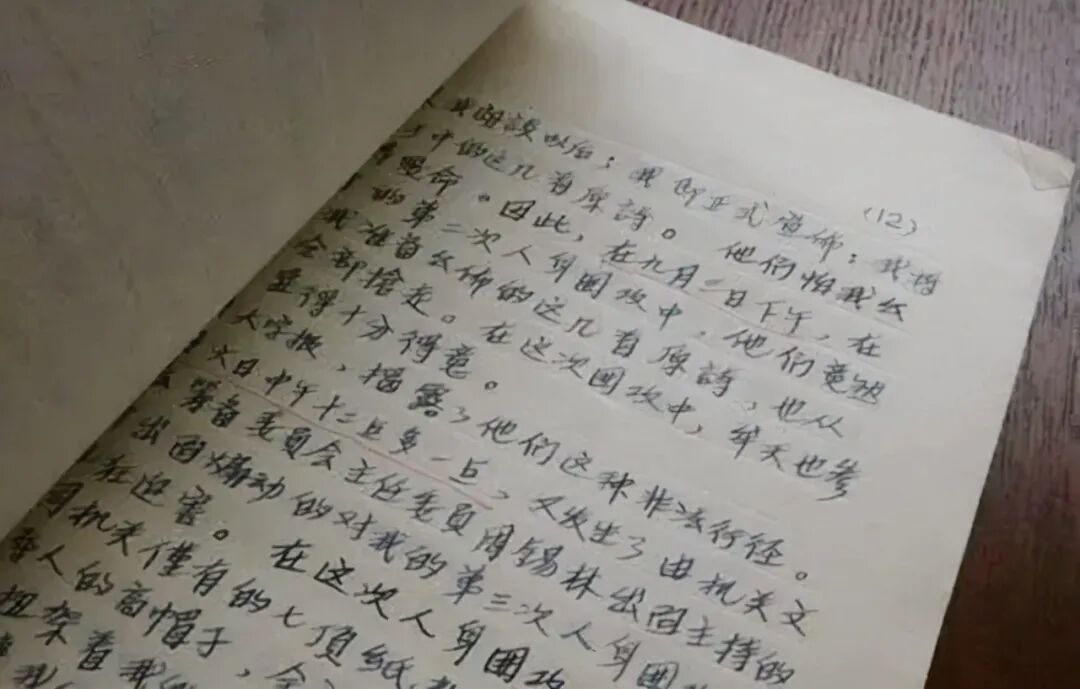 (12)
以后；我即正式宣佈：我将
中的这几首原詩。他们怕我纸
命。因此，在九月二日下午，在
的第二次人身围攻中，他们竟把
我准备公佈的这几首原詩，也从
全部搶走。在这次围攻中，牟天也参
显得十分得意。
大字报，揭露了他们这种非法行径。
六日中午十二点多一点，又发生了由机关文
筹备委员会主任委员周锡林出面主持的
出面煽动的对我的第三次人身围
狂迫害。在这次人身围攻
用机关僅有的七頂纸
人的高帽子，全
扭架着我